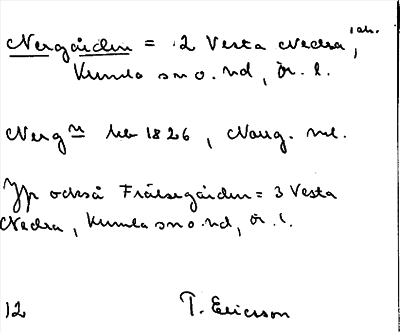 Nergården = 2 Vesta Nedra, 1 ah.
Kumla sn o. hd, Ör. l.
Nergn hb 1826,
Jfr också Frälsegården = 3 Vesta
Nedra, Kumla sn o. hd, Ör. l.
12 T. Ericsson